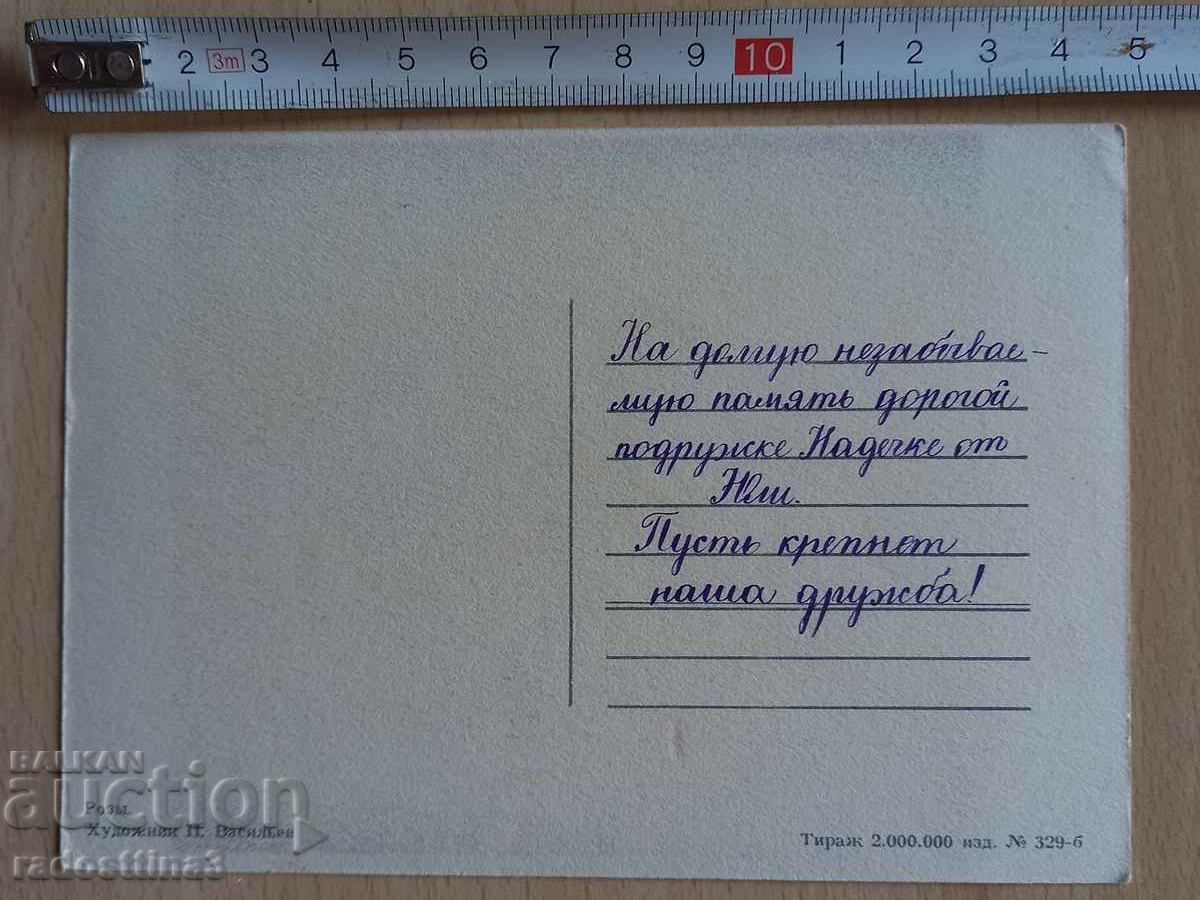 2 3m 3 4 5 6 7 8 9 10 1 2 3 4 5
На долгую незабывае-
мую память дорогой
подружке Надечке от
Юли.
Пусть крепнет
наша дружба!
Розы
Художник П. Васильев
Тираж 2.000.000 изд. № 329-б
BALKAN
auction
radosttina3